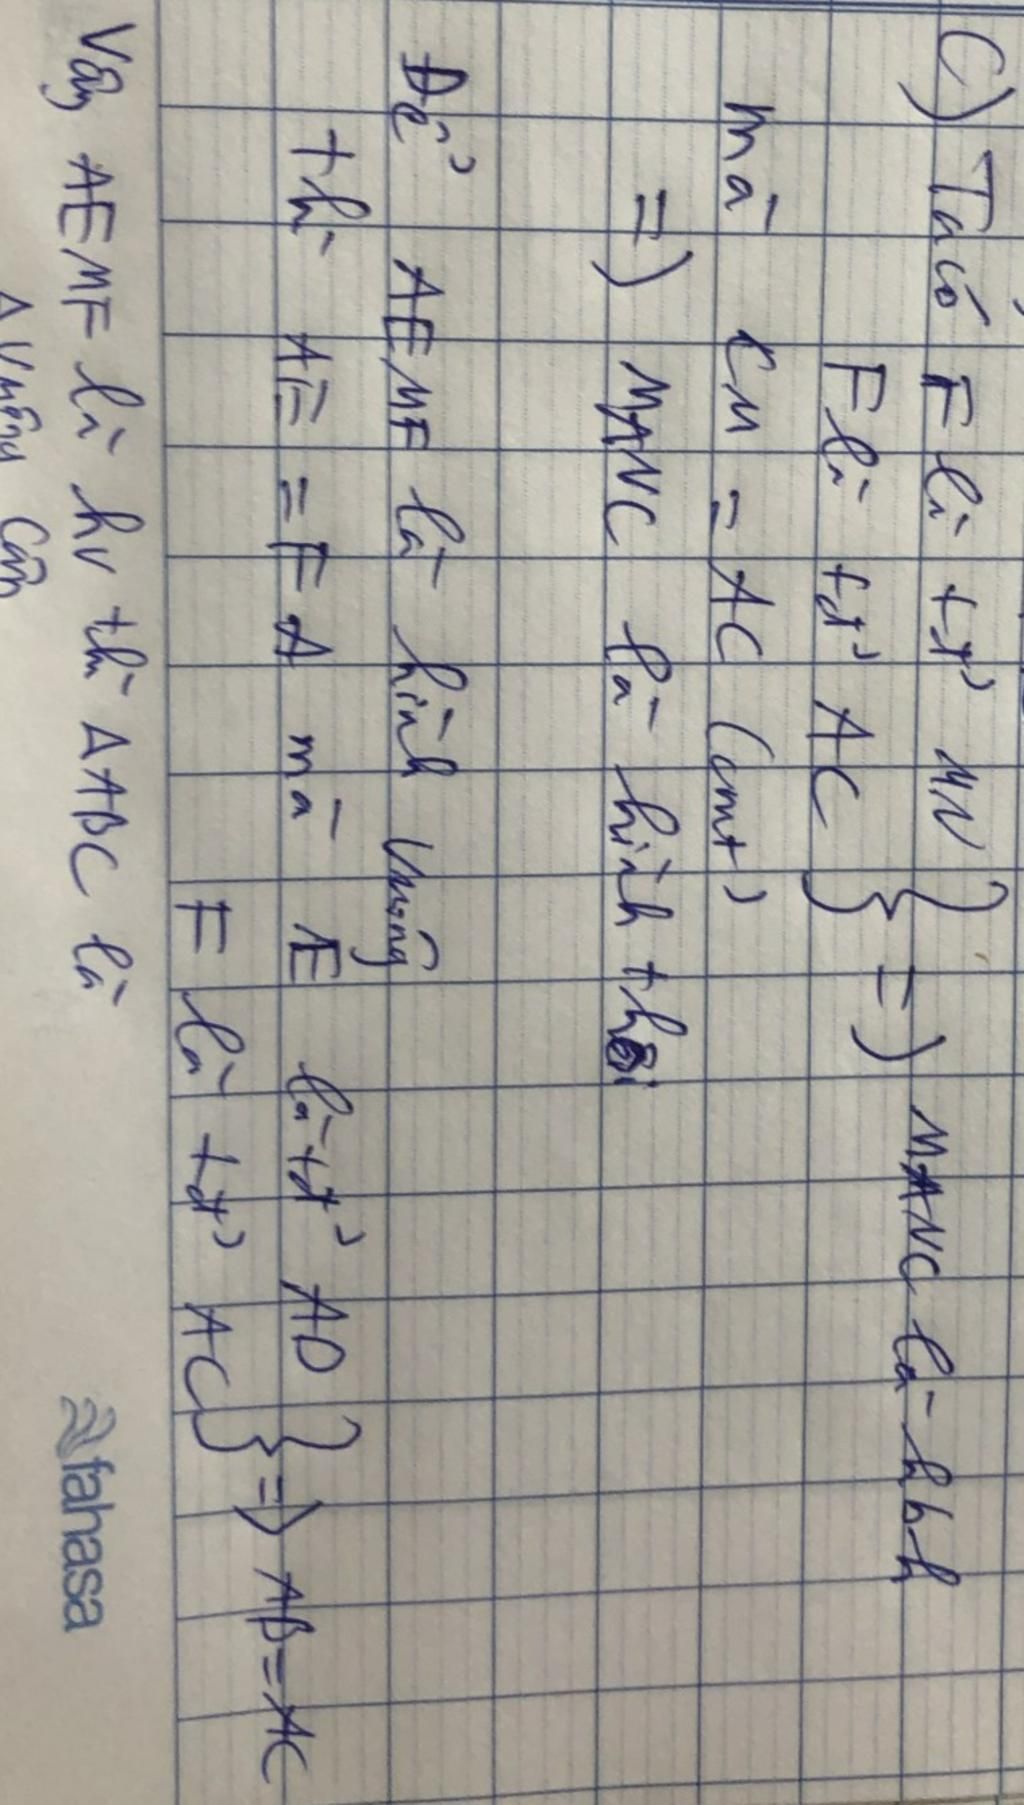 C) Ta có F là tđ' MN
F là tđ' AC } => MANC là hbh
mà CM = AC (cmt)
=> MANC là hình thoi
Để AEMF là hình vuông
thì AE = FA mà E là tđ' AD
F là tđ' AC } => AB = AC
Vậy AEMF là hv thì ΔABC là
Δ vuông cân
fahasa